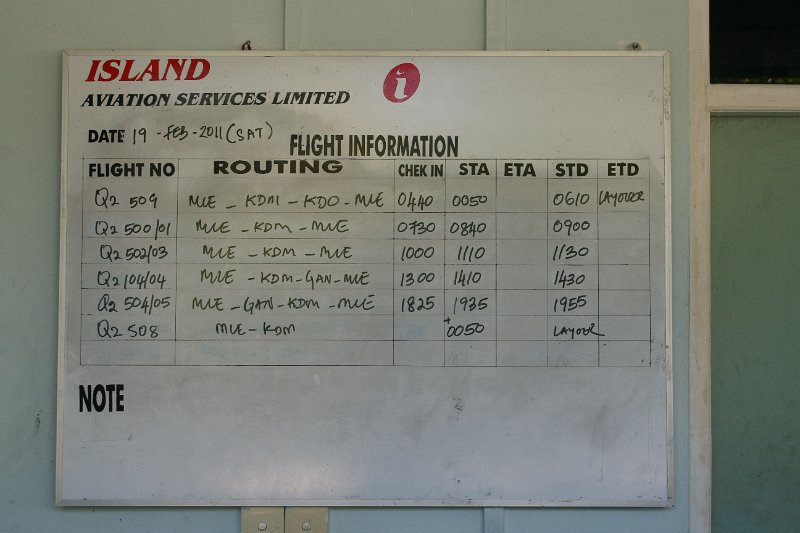 ISLAND
AVIATION SERVICES LIMITED
i
DATE 19 - FEB - 2011 (SAT)
FLIGHT INFORMATION
FLIGHT NO ROUTING CHEK IN STA ETA STD ETD
Q2 509 MLE - KDM - KDO - MLE 0440 0050 0610 LAYOVER
Q2 500/01 MLE - KDM - MLE 0730 0840 0900
Q2 502/03 MLE - KDM - MLE 1000 1110 1130
Q2 104/04 MLE - KDM - GAN - MLE 1300 1410 1430
Q2 504/05 MLE - GAN - KDM - MLE 1825 1935 1955
Q2 508 MLE - KDM +0050 LAYOER
NOTE